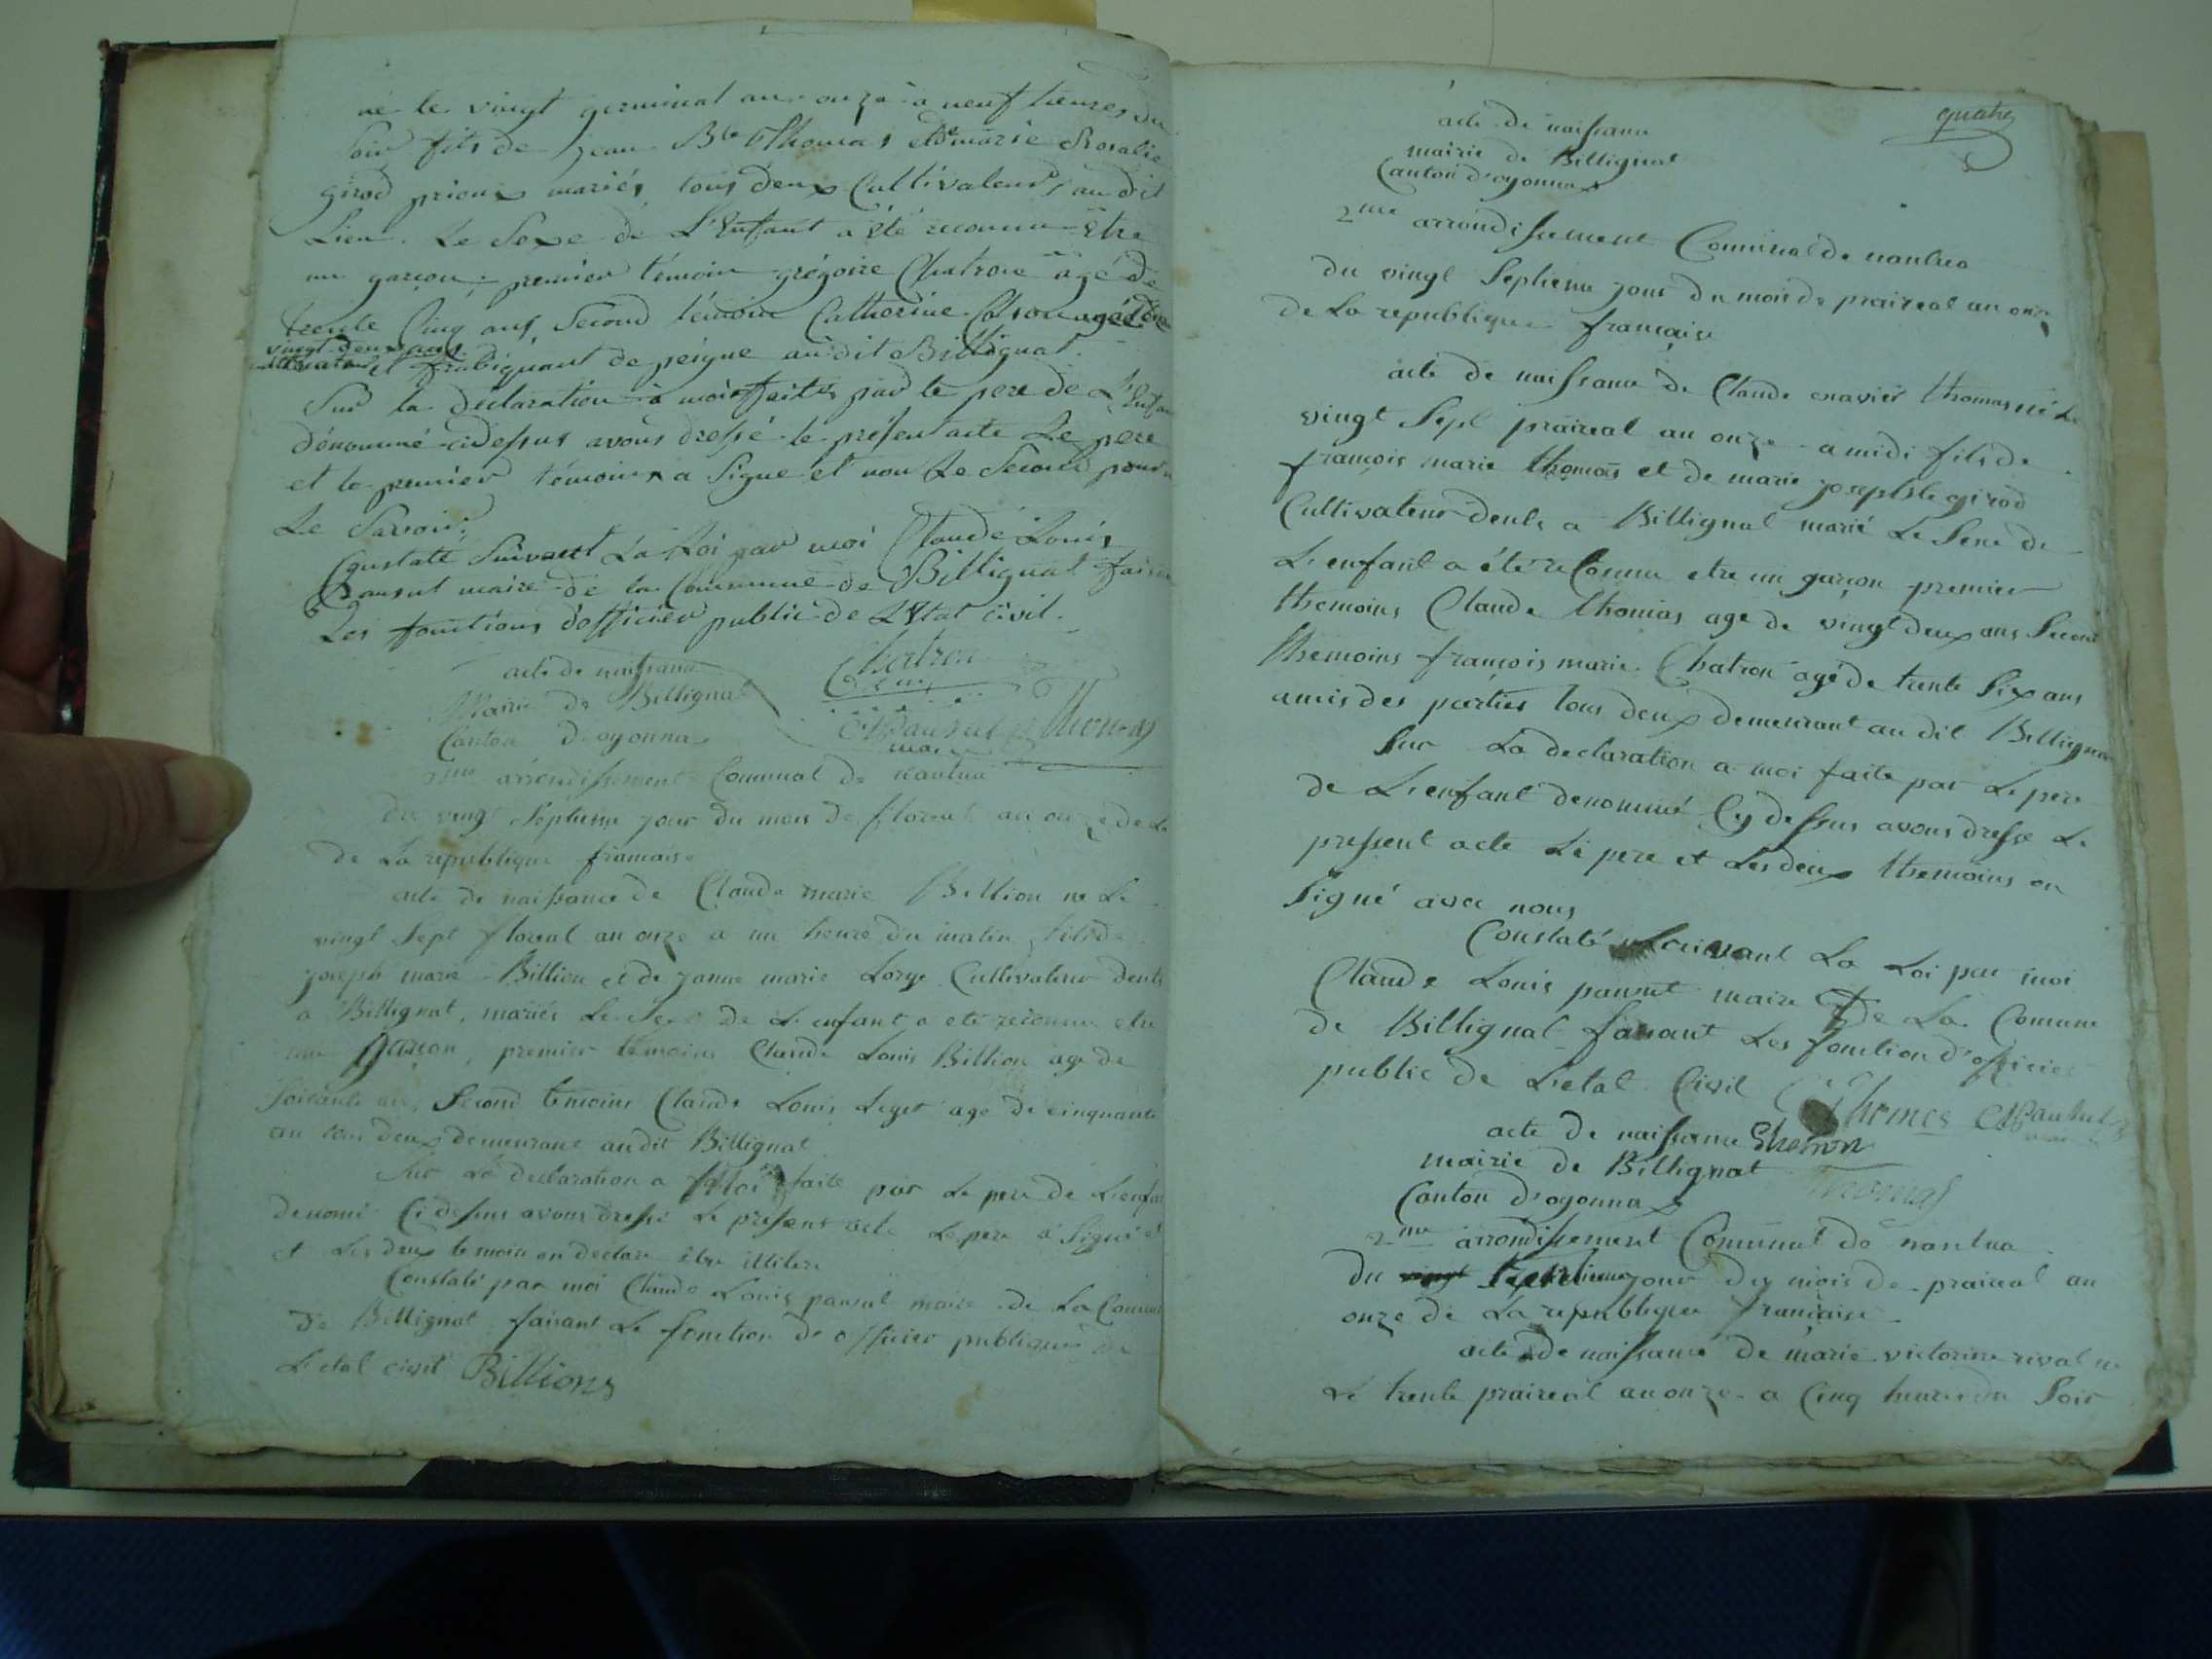 né le vingt germinal an onze à neuf heures du
soir fils de jean Bte Thomas et de marie Rosalie
girod prioux mariés, tous deux Cultivateurs au dit
Lieu. Le Sexe de L'Enfant a été reconnu être
un garçon; premier témoin grégoire Chatron agé de
trente Cinq ans, Second témoin Catherine agé de
vingt deux ans
et de peigne au dit Billignat.
Sur la déclaration à moi faite par le pere de L'Enfant
dénommé cidessus avons dressé le présent acte Le pere
et le premier témoin a Signe et non Le Second pour
Le Savoir;
Constaté Suivant La Loi par moi Claude Louis
Pansut maire de la Commune de Billignat faisant
Les fonctions d'officier public de L'Etat civil.
Chatron
acte de naissance
Mairie de Billignat
Canton D'oyonnax
Pansut Thomas
maire
2me arrondissement Communal de nantua
du vingt Septieme jour du mois de floreal an onze de La
de La republique francaise
acte de naissance de Claude marie Billion ne Le
vingt Sept floreal an onze a un heure du matin fils de
joseph marie Billion et de janne marie Lorge Cultivateur Dents
a Billignat, mariés Le Sexe de L'enfant a eté reconnu etre
un garson, premier temoins Claude Louis Billion age de
Soisante ans, Second temoins Claude Louis Leget age de cinquante
an tous deux demeurant audit Billignat
Sur La declaration a Moi faite par Le pere de L'enfant
denomé Ci dessus avons dressé Le present acte Le pere a Signé et
et Les deux temoin on declare être illitere
Constaté par moi Claude Louis pansut maire de La Comune
de Billignat faisant Le fonction de officier publique de
L'etat civil Billions
quatre
acte de naissance
mairie de Billignat
Canton d'oyonnax
2me arrondissement Comunal de nantua
du vingt Septieme jour du mois de praireal an onze
de La republique française
acte de naissance de Claude exavier thomas né Le
vingt Sept praireal an onze a midi fils de
françois marie thomas et de marie josephte girod
Cultivateur Dents a Billignat marié Le Sexe de
L'enfant a été reConnu etre un garçon premier
themoins Claude thomas age de vingt deux ans Second
themoins françois marie Chatron agé de trente Six ans
amis des parties tous deux demeurant au dit Billignat
Sur La declaration a moi faite par Le pere
de L'enfant denommé Cy dessus avons dressé Le
pressent acte Le pere et Les deux themoins on
Signé avec nous
Constaté Suivant La Loi par moi
Claude Louis pansut maire de La Comune
de Billignat faisant Les fonction d'officier
public de L'etat Civil Thomas Pansut
acte de naissance Chatron
mairie de Billignat Thomas
Canton d'oyonnax
2me arrondissement Comunal de nantua
Du vingt jour du mois de praireal an
onze de La republique française
acte de naissance de marie victorine rival ne
Le trente praireal an onze a Cinq heures du Soir